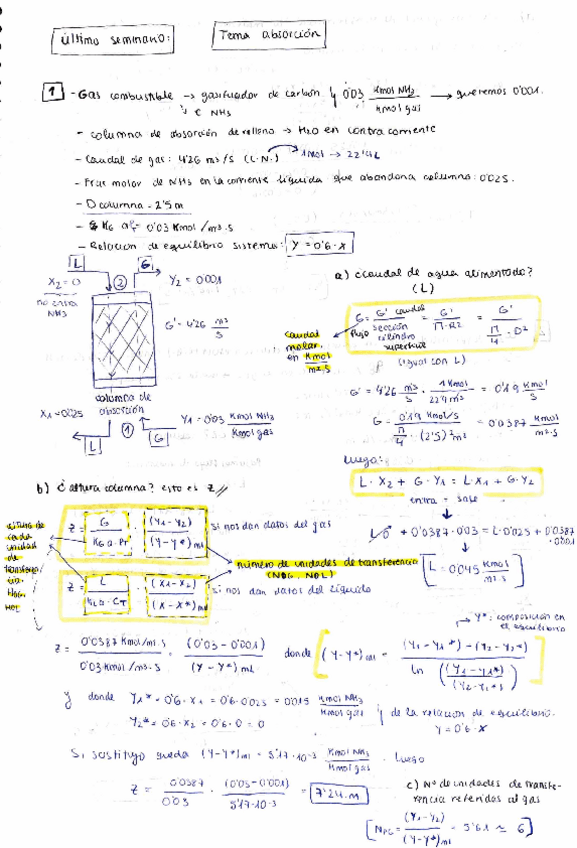 último seminario:
Tema absorción
1 - Gas combustible → gasificador de carbón y 0'03 Kmol NH3 / Kmol gas → queremos 0'001.
↳ c NH3
- columna de absorción de relleno → H2O en contracorriente
- Caudal de gas: 4'26 m3/s (C.N.) 1 mol → 22'4L
- Frac molar de NH3 en la corriente líquida que abandona columna: 0'025.
- D columna = 2'5 m
- KG a = 0'03 Kmol/m3·s
- Relación de equilibrio sistema: Y = 0'6·X
L G
X2 = 0
no entra NH3
2
Y2 = 0'001
G' = 4'26 m3/s
columna de absorción
X1 = 0'025
1
Y1 = 0'03 Kmol NH3 / Kmol gas
L G
a) ¿caudal de agua alimentado? (L)
G = G' caudal / sección cilindro superficie = G' / Π·R2 = G' / Π/4 · D2
flujo
caudal molar en Kmol / m2·s
(igual con L)
G' = 4'26 m3/s · 1 Kmol / 22'4 m3 = 0'19 Kmol/s
G = 0'19 Kmol/s / Π/4 · (2'5)2 m2 = 0'0387 Kmol / m2·s
Luego:
L·X2 + G·Y1 = L·X1 + G·Y2
entra = sale
L·0 + 0'0387·0'03 = L·0'025 + 0'0387·0'001
L = 0'045 Kmol / m2·s
b) ¿altura columna? esto es Z
altura de cada unidad de transferencia HOG, HOL
Z = G / KG a·PT · (Y1-Y2) / (Y-Y*)ml si nos dan datos del gas
número de unidades de transferencia (NOG, NOL)
Z = L / KL a·CT · (X1-X2) / (X-X*)ml si nos dan datos del líquido
Y*: composición en el equilibrio
Z = 0'0387 Kmol/m2·s / 0'03 Kmol/m3·s · (0'03-0'001) / (Y-Y*)mL donde (Y-Y*)ml = (Y1-Y1*)-(Y2-Y2*) / ln ((Y1-Y1*) / (Y2-Y2*))
y donde Y1* = 0'6·X1 = 0'6·0'025 = 0'015 Kmol NH3 / Kmol gas
Y2* = 0'6·X2 = 0'6·0 = 0
y de la relación de equilibrio. Y = 0'6·X
Si sustituyo queda (Y-Y*)ml = 5'17·10-3 Kmol NH3 / Kmol gas. Luego
Z = 0'0387 / 0'03 · (0'03-0'001) / 5'17·10-3 = 7'24 m
c) Nº de unidades de transferencia referidas al gas
NOG = (Y1-Y2) / (Y-Y*)ml = 5'61 ≈ 6